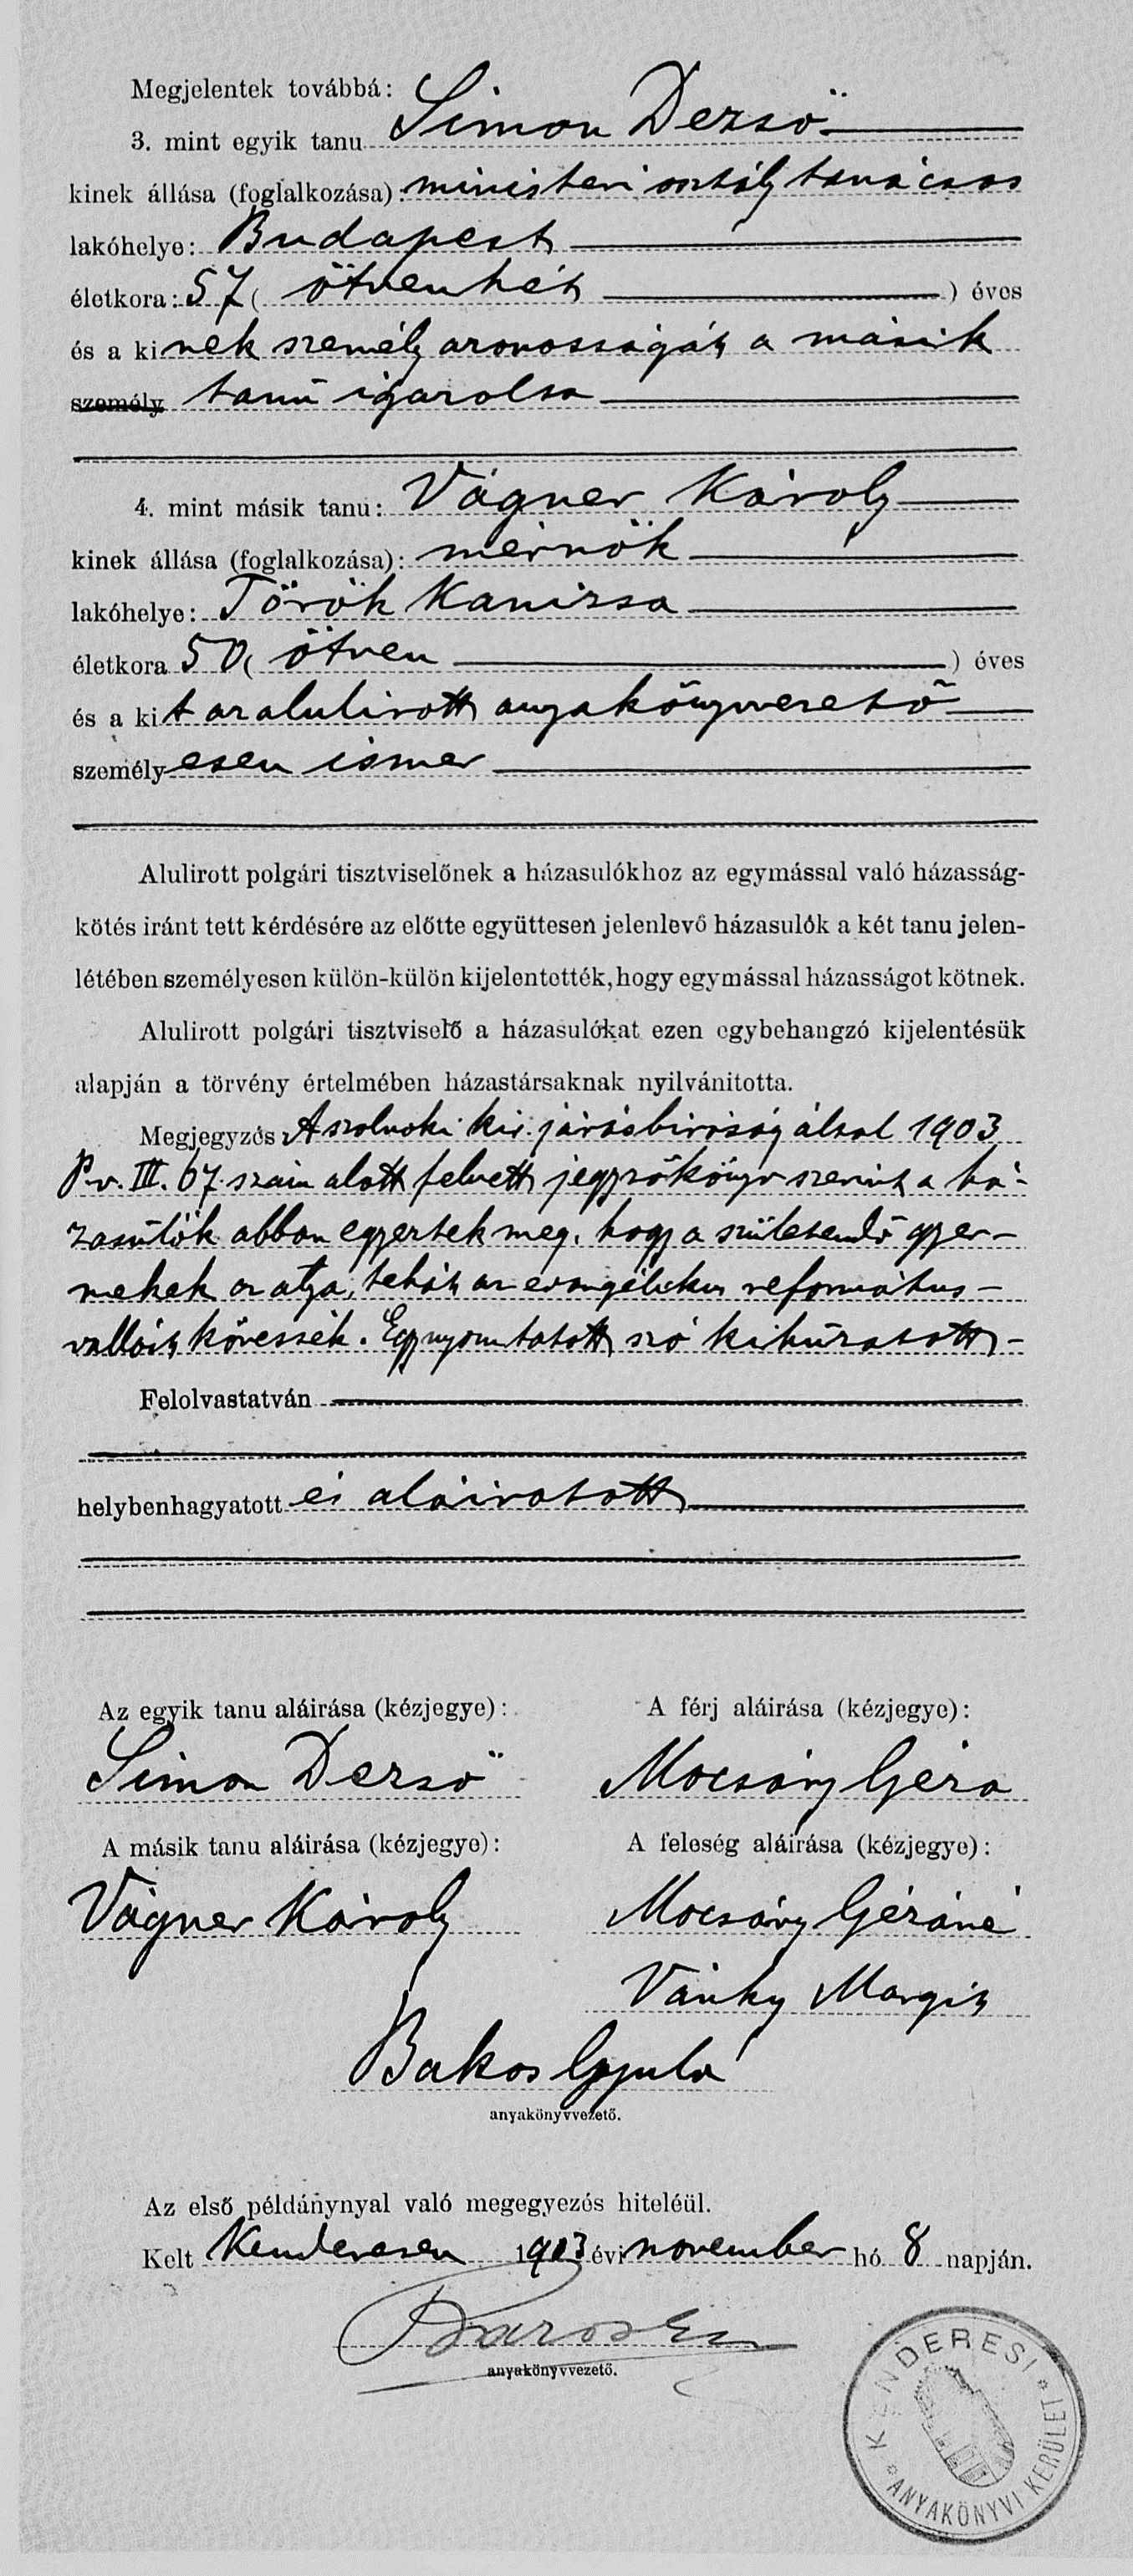 Megjelentek továbbá:
3. mint egyik tanu Simon Dezső
kinek állása (foglalkozása): ministeri osztály tanácsos
lakóhelye: Budapest
életkora: 57 ( ötvenhét ) éves
és a ki nek személy azonosságát a másik
személy tanú igazolja
4. mint másik tanu: Vágner Károly
kinek állása (foglalkozása): mérnök
lakóhelye: Török Kanizsa
életkora 50 ( ötven ) éves
és a ki t az alulirott anyakönyvvezető
személy esen ismer
Alulirott polgári tisztviselőnek a házasulókhoz az egymással való házasság-
kötés iránt tett kérdésére az előtte együttesen jelenlevő házasulók a két tanu jelen-
létében személyesen külön-külön kijelentették, hogy egymással házasságot kötnek.
Alulirott polgári tisztviselő a házasulókat ezen egybehangzó kijelentésük
alapján a törvény értelmében házastársaknak nyilvánitotta.
Megjegyzés A szolnoki kir. járásbiróság által 1903
P.v. III. 67. szám alatt felvett jegyzőkönyv szerint a há-
zasulók abban egyeztek meg, hogy a születendő gyer-
mekek az atya, tehát az evangélikus református
vallást kövessék. Egy nyomtatott szó kihúzatott
Felolvastatván
helybenhagyatott és aláiratott
Az egyik tanu aláirása (kézjegye): A férj aláirása (kézjegye):
Simon Dezső Mocsáry Géza
A másik tanu aláirása (kézjegye): A feleség aláirása (kézjegye):
Vágner Károly Mocsáry Gézáné
Vánky Margit
Bakos Gyula
anyakönyvvezető.
Az első példánynyal való megegyezés hiteléül.
Kelt Kenderesen 1903 évi november hó 8 napján.
anyakönyvvezető.
KENDERESI
ANYAKÖNYVI KERÜLET